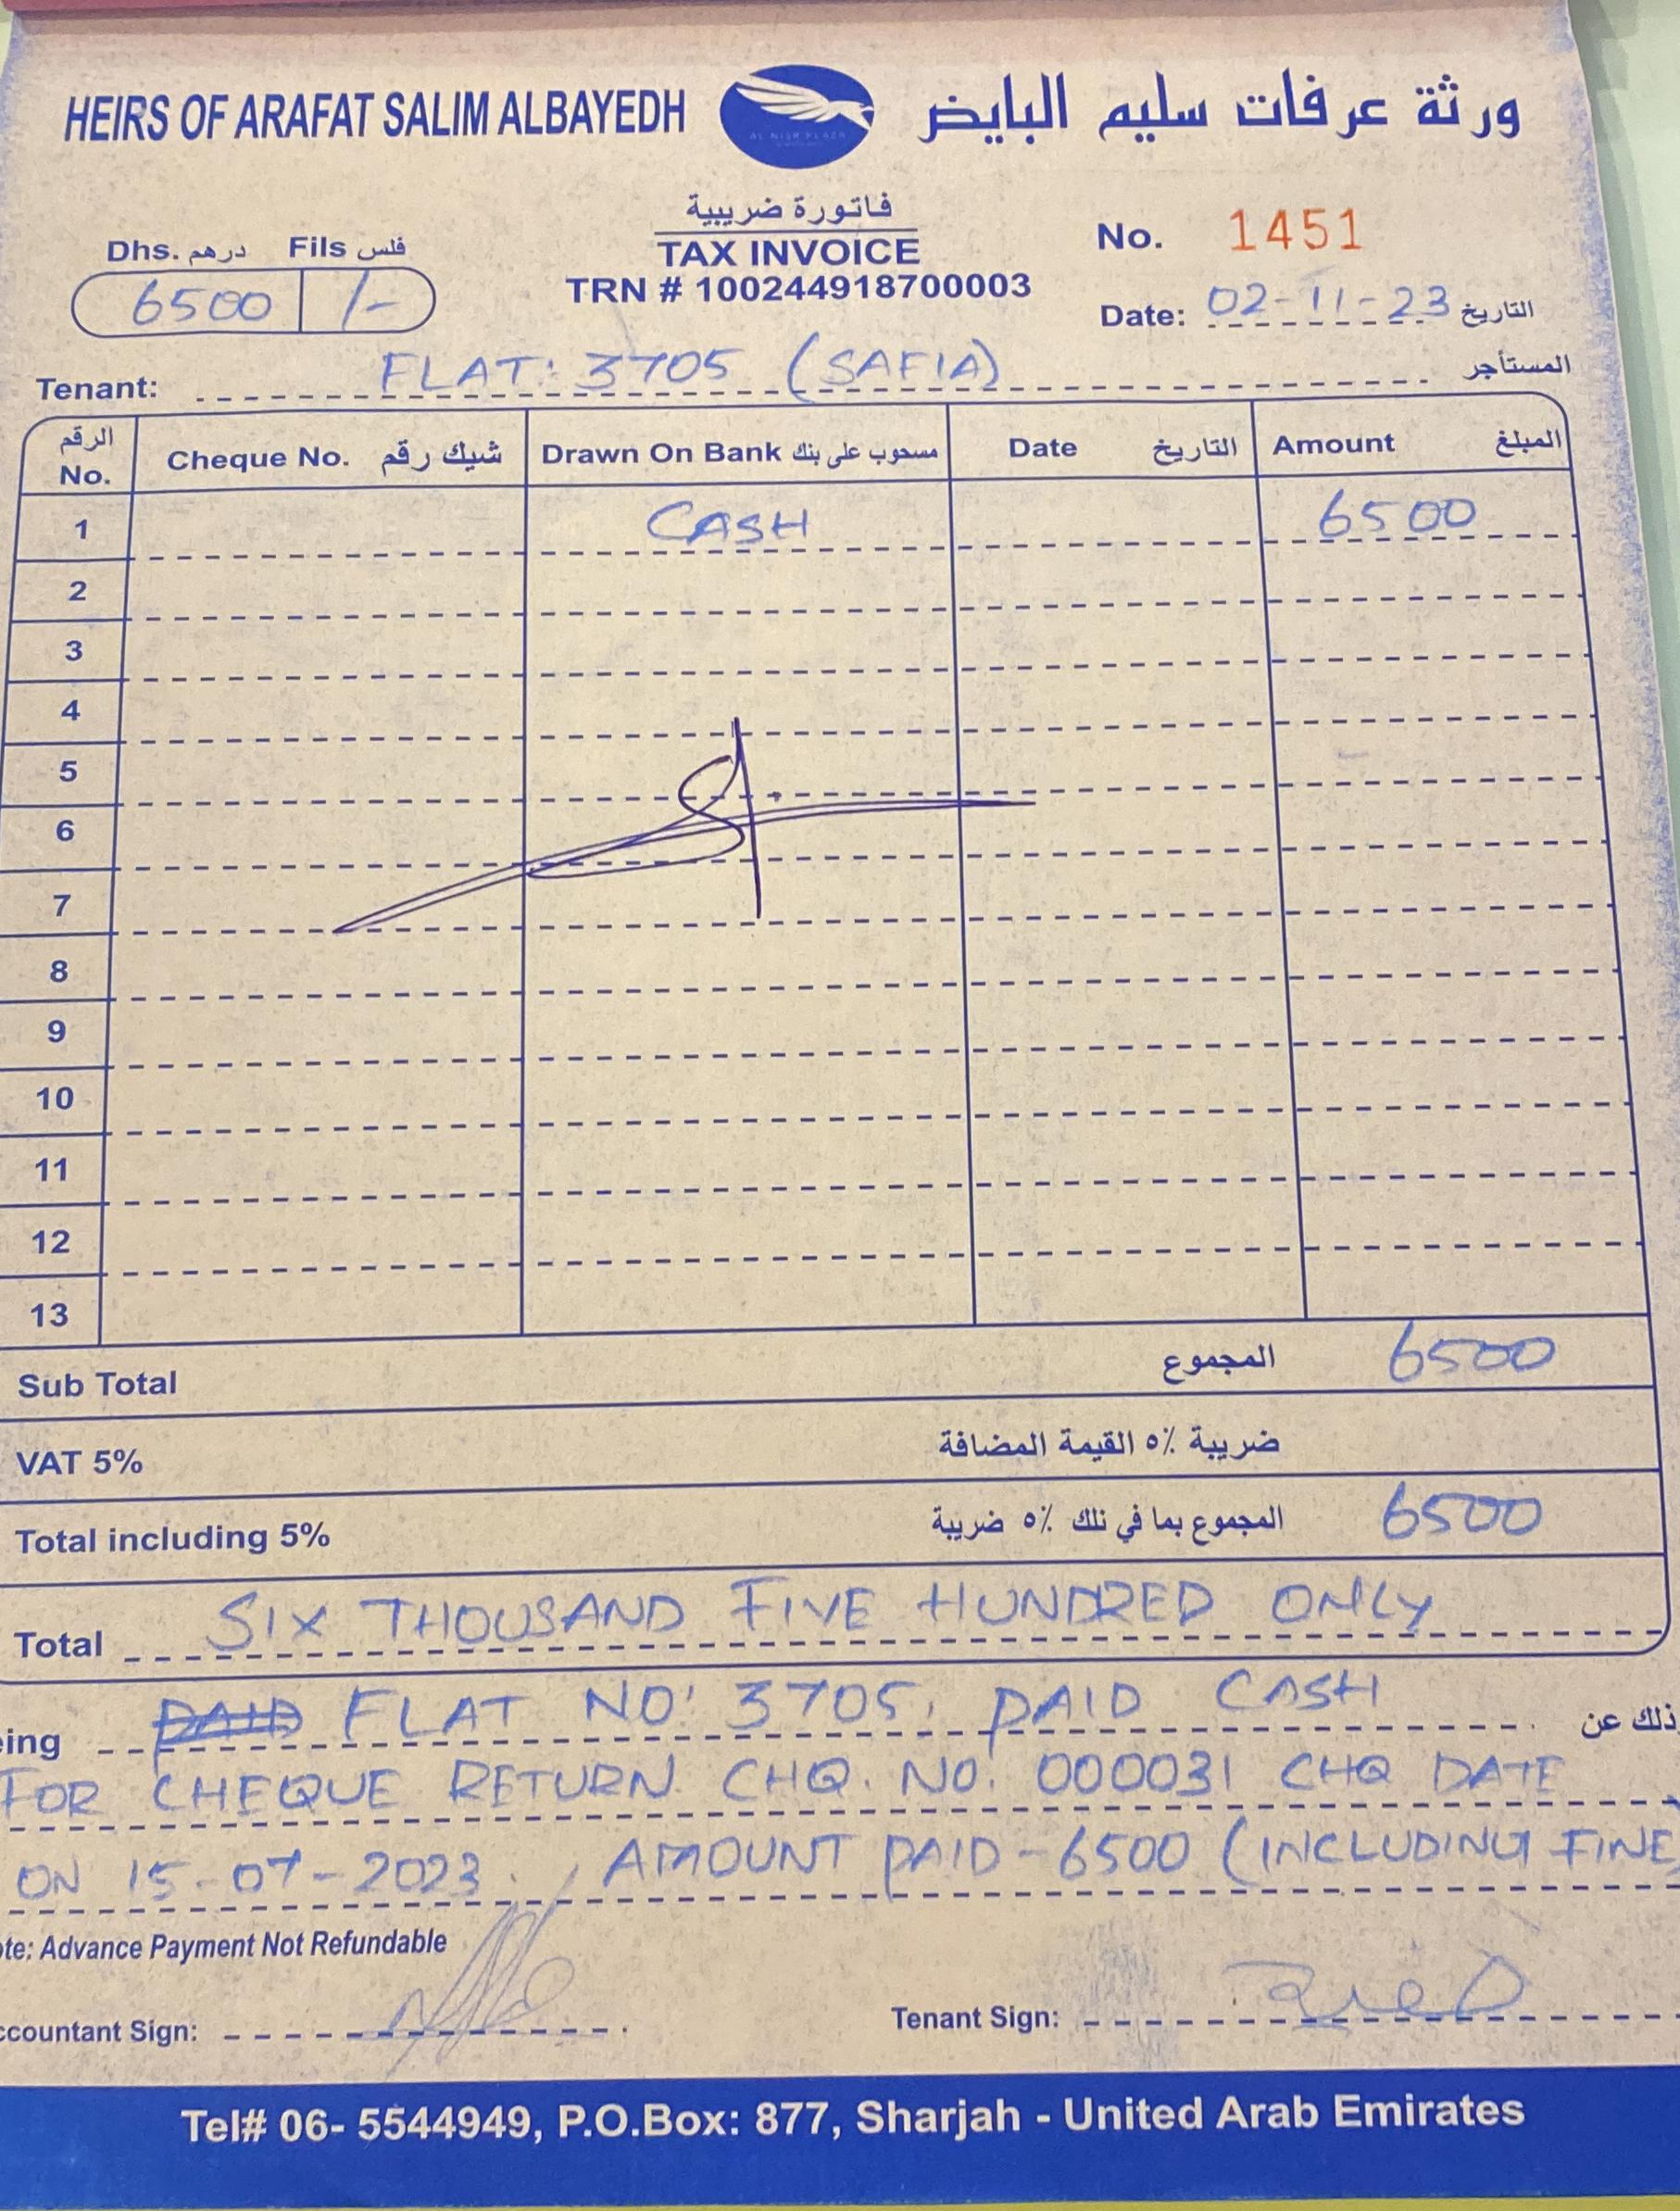 HEIRS OF ARAFAT SALIM ALBAYEDH
AL NISR PLAZA
ورثة عرفات سليم البايض
فاتورة ضريبية
TAX INVOICE
TRN # 100244918700003
Dhs. درهم Fils فلس
6500 /-
No. 1451
Date: 02-11-23 التاريخ
Tenant: FLAT: 3705 (SAFIA) المستأجر
الرقم No. Cheque No. شيك رقم Drawn On Bank مسحوب على بنك Date التاريخ Amount المبلغ
1 CASH 6500
2
3
4
5
6
7
8
9
10
11
12
13
Sub Total المجموع 6500
VAT 5% ضريبة ٥٪ القيمة المضافة
Total including 5% المجموع بما في ذلك ٥٪ ضريبة 6500
Total SIX THOUSAND FIVE HUNDRED ONLY
eing PAID FLAT NO: 3705, PAID CASH ذلك عن
FOR CHEQUE RETURN CHQ. NO. 000031 CHQ DATE
ON 15-07-2023. AMOUNT PAID - 6500 (INCLUDING FINE)
ote: Advance Payment Not Refundable
ccountant Sign:
Tenant Sign:
Tel# 06- 5544949, P.O.Box: 877, Sharjah - United Arab Emirates